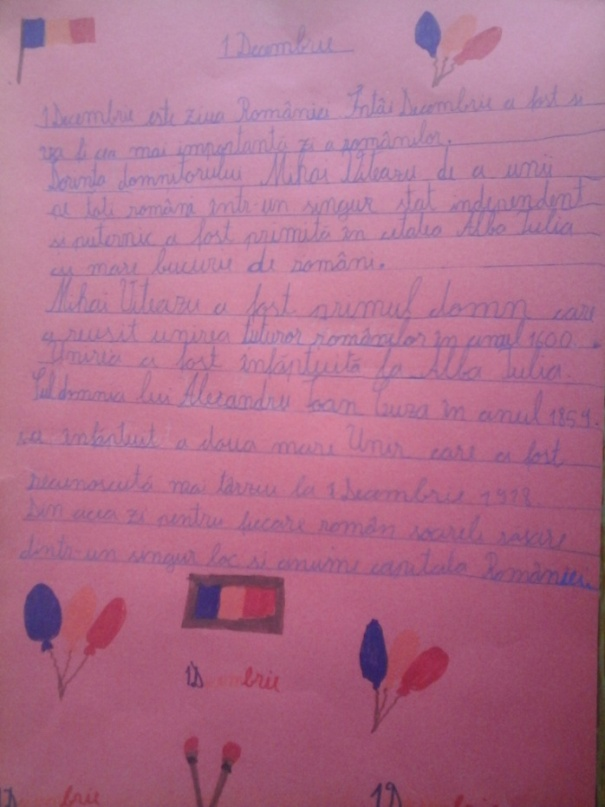 1 Decembrie
1 Decembrie este ziua României Întâi Decembrie a fost si
va fi cea mai importantă zi a românilor.
Dorința domnitorului Mihai Viteazu de a unii
pe toti români intr-un singur stat independent
si puternic a fost primită in cetatea Alba Iulia
cu mare bucurie de români.
Mihai Viteazu a fost primul domn care
a reusit unirea tuturor românilor in anul 1600.
Unirea a fost infăptuită la Alba Iulia.
Sub domnia lui Alexandru Ioan Cuza in anul 1859.
sa infăptuit a doua mare Unire care a fost
recunoscută mai târziu la 1 Decembrie 1918
Din acea zi pentru fiecare român soarele rasare
dintr-un singur loc si anume capitala României
1 Decembrie